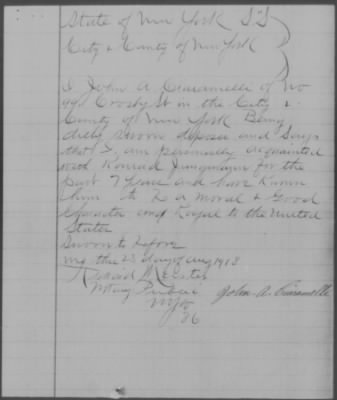 State of New York SS
City & County of New York
I John A Ciaramelli of No
Crosby St in the City &
County of New York Being
duly sworn deposes and Says
that I, am personaly acquainted
with Konrad for the
past 7 years and have Known
him to be a moral & Good
Character and Loyal to the United
States
Sworn to before
me this 23 day of Aug 1918
David
Notary Public John A. Ciaramelli
NYCo
26